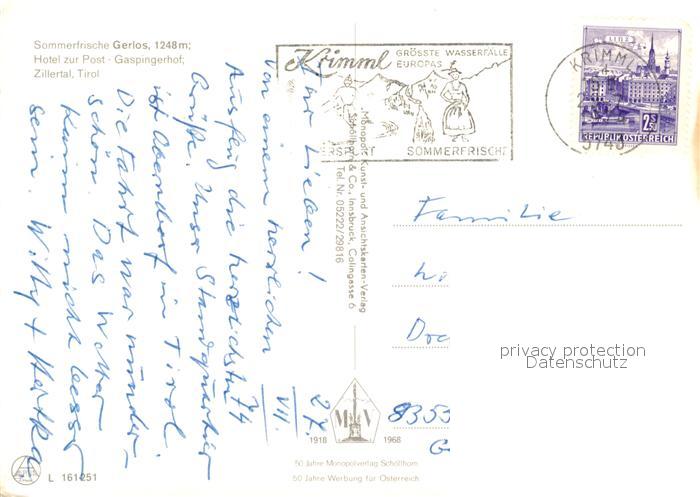 Sommerfrische Gerlos, 1248m;
Hotel zur Post - Gaspingerhof;
Zillertal, Tirol
Krimml GRÖSSTE WASSERFÄLLE
EUROPAS
SOMMERFRISCHE
LINZ
2S50
REPUBLIK ÖSTERREICH
KRIMML
5743
Monopol, Kunst- und Ansichtskarten-Verlag
Schöllhorn & Co., Innsbruck, Colingasse 6
Tel. Nr. 05222/29816
27.
VII.
74
Ihr Lieben!
Von einem herrlichen
Ausflug die herzlichsten
Grüße. Unser Standquartier
ist Oberndorf in Tirol.
Die Fahrt war wunder-
schön. Das Wetter
kann nicht besser
sein. Willy + Hertha
Familie
8353
G
privacy protection
Datenschutz
MV
1918 1968
50 Jahre Monopolverlag Schöllhorn
50 Jahre Werbung für Österreich
L 161251